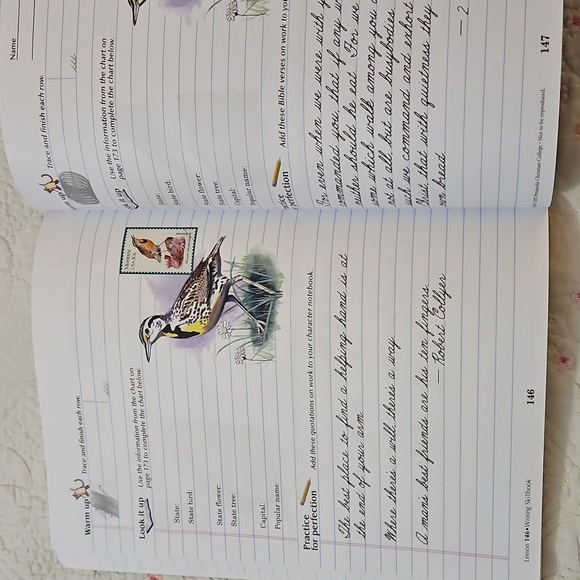 Warm up Trace and finish each row.
Look it up Use the information from the chart on
page 173 to complete the chart below.
Montana
State:
State bird:
State flower:
State tree:
Capital:
Popular name:
Practice
for perfection Add these quotations on work to your character notebook.
The best place to find a helping hand is at
the end of your arm.
Where there's a will, there's a way.
A man's best friends are his ten fingers.
— Robert Collyer
Lesson 146 • Writing Skillbook
146
Name
Trace and finish each row.
Use the information from the chart on
page 173 to complete the chart below.
State:
State bird:
State flower:
State tree:
Capital:
Popular name:
Add these Bible verses on work to
For even when we were with
commanded you, that if any
neither should he eat. For we
some which walk among you
not at all, but are busybodies.
such we command and exhort
Christ, that with quietness they
own bread.
— 2
Christian College • Not to be reproduced.
147